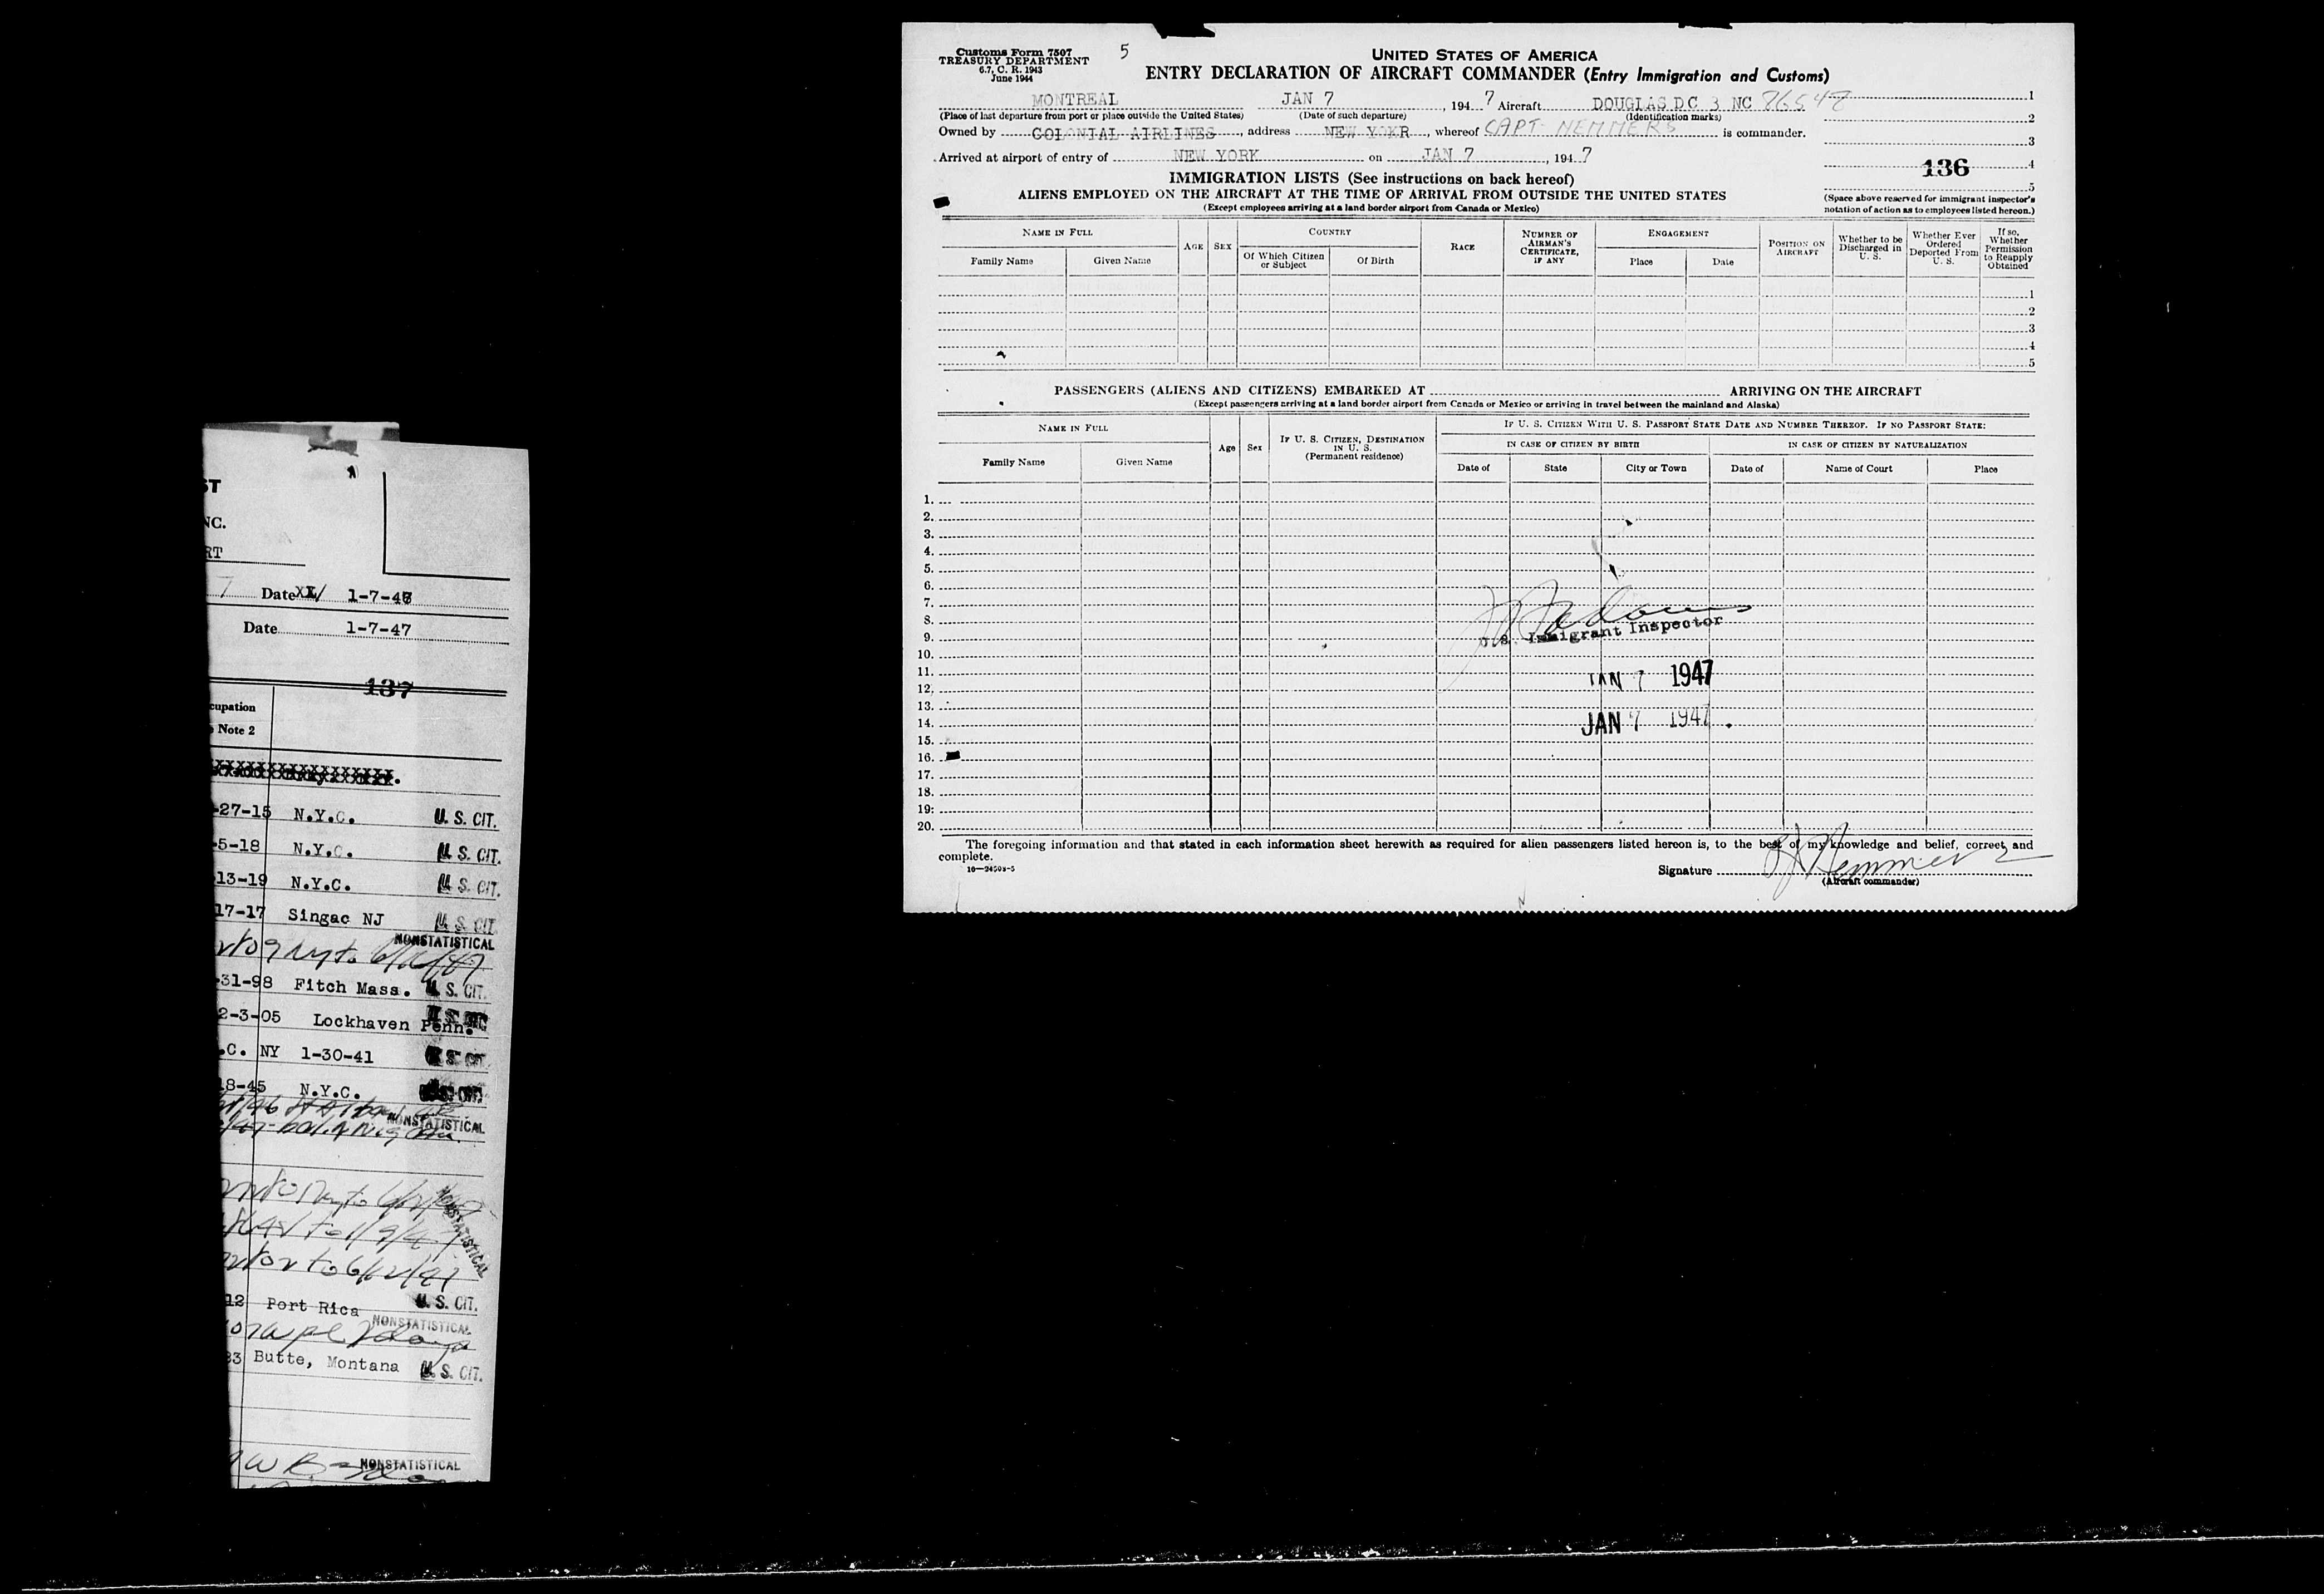 ST
NC.
RT
7 Date 1-7-47
Date 1-7-47
137
cupation
Note 2
-27-15 N.Y.C. U. S. CIT.
-5-18 N.Y.C. U. S. CIT.
13-19 N.Y.C. U. S. CIT.
17-17 Singac NJ U. S. CIT.
NONSTATISTICAL
-31-98 Fitch Mass. U. S. CIT.
2-3-05 Lockhaven Penn.
.C. NY 1-30-41
18-45 N.Y.C.
NONSTATISTICAL
NONSTATISTICAL
12 Port Rica U. S. CIT.
NONSTATISTICAL
33 Butte, Montana U. S. CIT.
NONSTATISTICAL
Customs Form 7507
TREASURY DEPARTMENT
6.7, C. R. 1943
June 1944
5
UNITED STATES OF AMERICA
ENTRY DECLARATION OF AIRCRAFT COMMANDER (Entry Immigration and Customs)
MONTREAL JAN 7, 1947 Aircraft DOUGLAS DC 3 NC 86548
(Place of last departure from port or place outside the United States) (Date of such departure) (Identification marks)
Owned by COLONIAL AIRLINES, address NEW YOKR, whereof CAPT- NEMMERS is commander.
Arrived at airport of entry of NEW YORK on JAN 7, 1947
1
2
3
136 4
5
(Space above reserved for immigrant inspector's
notation of action as to employees listed hereon.)
IMMIGRATION LISTS (See instructions on back hereof)
ALIENS EMPLOYED ON THE AIRCRAFT AT THE TIME OF ARRIVAL FROM OUTSIDE THE UNITED STATES
(Except employees arriving at a land border airport from Canada or Mexico)
NAME IN FULL
Family Name Given Name
AGE SEX
COUNTRY
Of Which Citizen or Subject Of Birth
RACE
NUMBER OF AIRMAN'S CERTIFICATE, IF ANY
ENGAGEMENT
Place Date
POSITION ON AIRCRAFT
Whether to be Discharged in U. S.
Whether Ever Ordered Deported From U. S.
If so, Whether Permission to Reapply Obtained
1
2
3
4
5
PASSENGERS (ALIENS AND CITIZENS) EMBARKED AT ARRIVING ON THE AIRCRAFT
(Except passengers arriving at a land border airport from Canada or Mexico or arriving in travel between the mainland and Alaska)
NAME IN FULL
Family Name Given Name
Age Sex
IF U. S. CITIZEN, DESTINATION IN U. S.
(Permanent residence)
IF U. S. CITIZEN WITH U. S. PASSPORT STATE DATE AND NUMBER THEREOF. IF NO PASSPORT STATE:
IN CASE OF CITIZEN BY BIRTH IN CASE OF CITIZEN BY NATURALIZATION
Date of State City or Town Date of Name of Court Place
1.
2.
3.
4.
5.
6.
7.
8.
9.
10.
11.
12.
13.
14.
15.
16.
17.
18.
19.
20.
U. S. Immigrant Inspector
JAN 7 1947
JAN 7 1947
The foregoing information and that stated in each information sheet herewith as required for alien passengers listed hereon is, to the best of my knowledge and belief, correct and
complete.
16—24508-5
Signature Nemmers
(Aircraft commander)